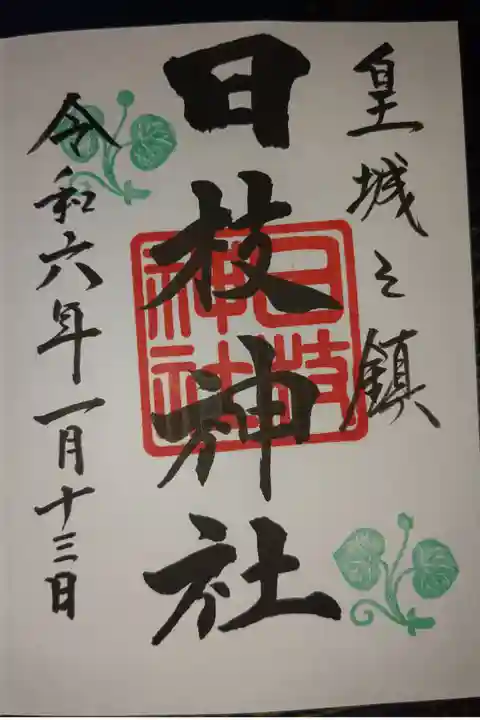 皇城之鎮
日枝神社
日枝神社
令和六年一月十三日